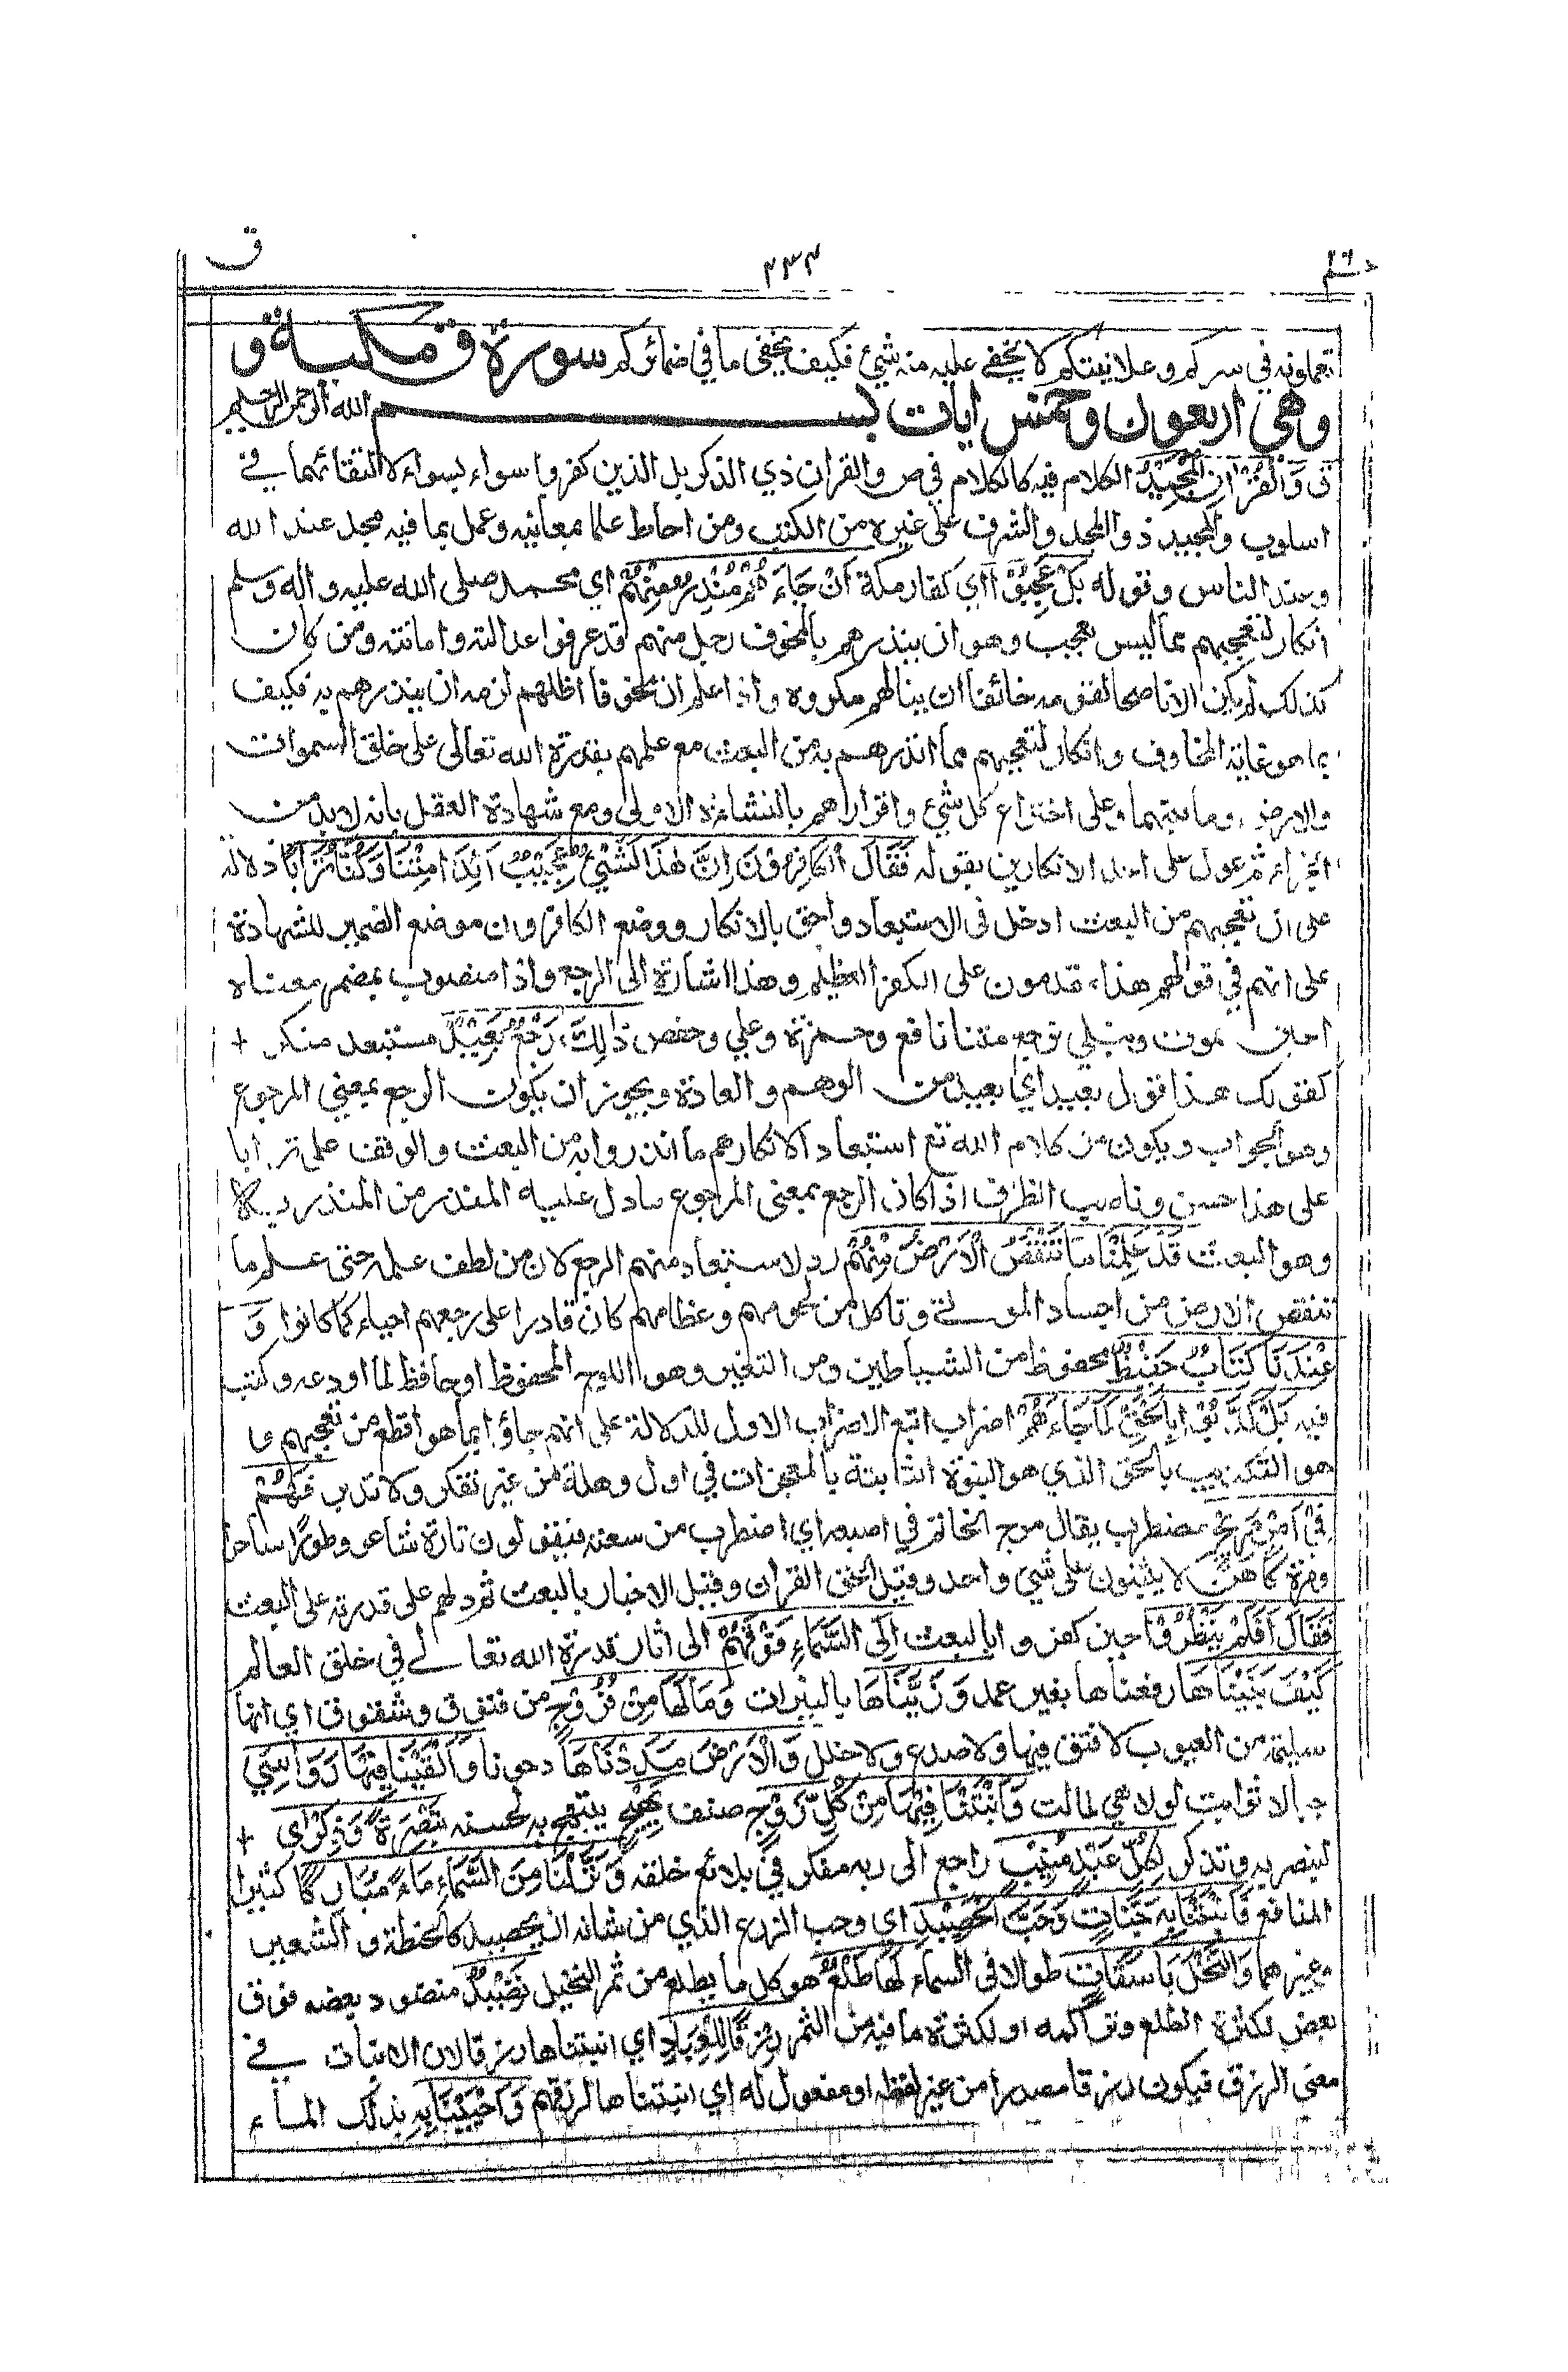 حم ٢٦ ٢٣٣ ق
تعملونه في سركم وعلانيتكم لا يخفى عليه منه شيئ فكيف يخفى ما في ضمائركم سورة ق مكية و
وهي اربعون وخمس ايات بســـم الله الرحمن الرحيم
ق وَالْقُرْاٰنِ الْمَجِيْدِ الكلام فيه كالكلام في ص والقران ذي الذكر بل الذين كفروا سواء بسواء لالتقائهما في
اسلوب والمجيد ذو المجد والشرف على غيره من الكتب ومن احاط علما بمعانيه وعمل بما فيه مجد عند الله
وعند الناس وقوله بَلْ عَجِبُوْٓا اي كفار مكة اَنْ جَآءَهُمْ مُنْذِرٌ مِنْهُمْ اي محمد صلى الله عليه واله وسلم
انكار لتعجبهم مما ليس بعجب وهو ان ينذرهم بالمخوف رجل منهم قد عرفوا عدالته وامانته ومن كان
كذلك لم يكن الا ناصحا لقومه خائفا ان ينالهم مكروه واذا علم ان مخوفا اظلهم لزمه ان ينذرهم به فكيف
بما هو غاية المخاوف وانكار لتعجبهم مما انذرهم به من البعث مع علمهم بقدرة الله تعالى على خلق السموات
والارض وما بينهما وعلى اختراع كل شيء واقرارهم بالنشاءة الاولى ومع شهادة العقل بانه لا بد من
الجزاء ثم عول على احد الانكارين بقوله فَقَالَ الْكَافِرُوْنَ اِنَّ هٰذَا لَشَيْءٌ عَجِيْبٌ اَئِذَا مِتْنَا وَكُنَّا تُرَابًا دلالة
على ان تعجبهم من البعث ادخل في الاستبعاد واحق بالانكار ووضع الكافرون موضع الضمير للشهادة
على انهم في قولهم هذا مقدمون على الكفر العظيم وهذا اشارة الى الرجع واذا منصوب بمضمر معناه
احين نموت ونبلى نرجع متنا نافع وحمزة وعلي وحفص ذٰلِكَ رَجْعٌ بَعِيْدٌ مستبعد منكر +
كقولك هذا قول بعيد اي بعيد من الوهم والعادة ويجوز ان يكون الرجع بمعنى المرجوع
وهو الجواب ويكون من كلام الله تع استبعادا لانكارهم ما انذروا به من البعث والوقف على ترابا
على هذا حسن وناصب الظرف اذا كان الرجع بمعنى المرجوع ما دل عليه المنذر من المنذر به
وهو البعث قَدْ عَلِمْنَا مَا تَنْقُصُ الْاَرْضُ مِنْهُمْ رد لاستبعادهم الرجع لان من لطف علمه حتى علم ما
تنقص الارض من اجساد الموتى وتاكل من لحومهم وعظامهم كان قادرا على رجعهم احياء كما كانوا وَ
عِنْدَنَا كِتَابٌ حَفِيْظٌ محفوظ من الشياطين ومن التغير وهو اللوح المحفوظ او حافظ لما اودعه وكتب
فيه بَلْ كَذَّبُوْا بِالْحَقِّ لَمَّا جَآءَهُمْ اضراب اتبع الاضراب الاول للدلالة على انهم جاؤا بما هو افظع من تعجبهم و
هو التكذيب بالحق الذي هو النبوة الثابتة بالمعجزات في اول وهلة من غير تفكر ولا تدبر فَهُمْ
فِيْٓ اَمْرٍ مَرِيْجٍ مضطرب يقال مرج الخاتم في اصبعه اي اضطرب من سعته فيقولون تارة شاعر وطورا ساحر
ومرة كاهن لا يثبتون على شيء واحد وقيل الحق القران وقيل الاخبار بالبعث ثم دلهم على قدرته على البعث
فَقَالَ اَفَلَمْ يَنْظُرُوْٓا حين كفروا بالبعث اِلَى السَّمَآءِ فَوْقَهُمْ الى اثار قدرة الله تعالى في خلق العالم
كَيْفَ بَنَيْنَاهَا رفعناها بغير عمد وَزَيَّنَّاهَا بالنيرات وَمَا لَهَا مِنْ فُرُوْجٍ من فتوق وشقوق اي انها
سليمة من العيوب لا فتق فيها ولا صدع ولا خلل وَالْاَرْضَ مَدَدْنَاهَا دحوناها وَاَلْقَيْنَا فِيْهَا رَوَاسِيَ
جبالا ثوابت لولا هي لمالت وَاَنْبَتْنَا فِيْهَا مِنْ كُلِّ زَوْجٍ صنف بَهِيْجٍ يبتهج به لحسنه تَبْصِرَةً وَذِكْرٰى +
لنبصر به ونذكر لِكُلِّ عَبْدٍ مُنِيْبٍ راجع الى ربه مفكر في بدائع خلقه وَنَزَّلْنَا مِنَ السَّمَآءِ مَآءً مُبَارَكًا كثير
المنافع فَاَنْبَتْنَا بِهٖ جَنَّاتٍ وَحَبَّ الْحَصِيْدِ اي وحب الزرع الذي من شانه ان يحصد كالحنطة والشعير
وغيرهما وَالنَّخْلَ بَاسِقَاتٍ طوالا في السماء لَهَا طَلْعٌ هو كل ما يطلع من ثمر النخيل نَضِيْدٌ منضود بعضه فوق
بعض لكثرة الطلع وتراكمه او لكثرة ما فيه من الثمر رِزْقًا لِلْعِبَادِ اي انبتناها رزقا لان الانبات في
معنى الرزق فيكون رزقا مصدرا من غير لفظه او مفعول له اي انبتناها لرزقهم وَاَحْيَيْنَا بِهٖ بذلك الماء